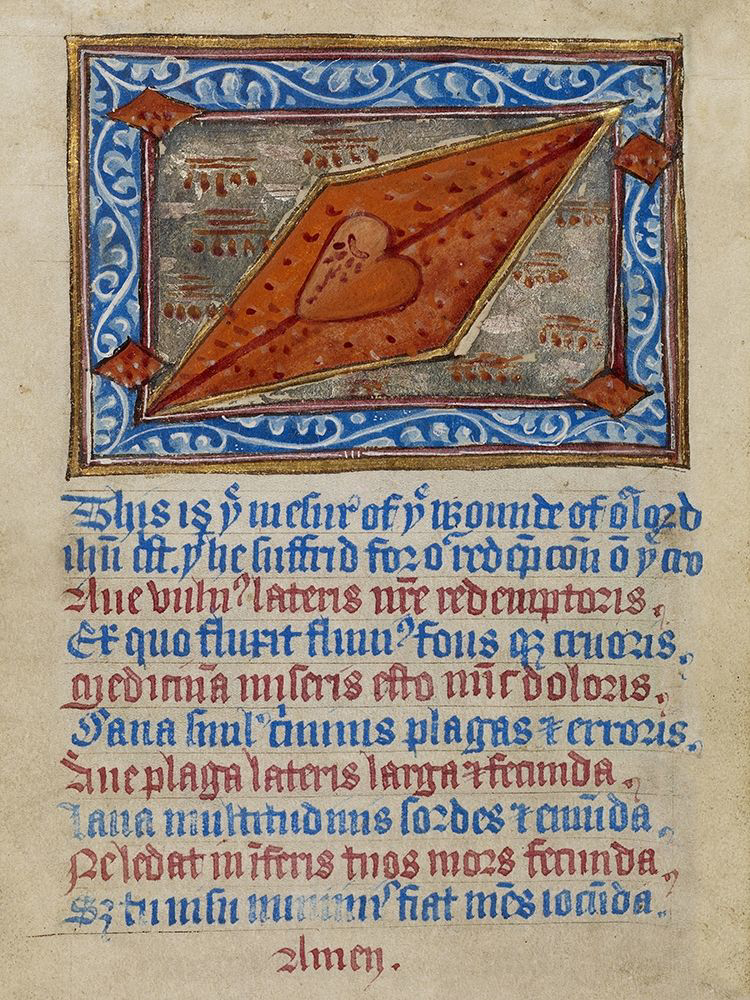 This is yͤ mesurͤ of yͤ wounde of oͬ lord
ihū cst. yͭ he suffrid for oͬ redēpcoū ō y cro
Aue vulnꝰ lateris nr̄e redemptoris.
Ex quo fluxit fluuiꝰ fons qꝫ cruoris.
Medicīa miseris esto nūc doloris.
Sana simul cͥminis plagas ⁊ erroris.
Aue plaga lateris larga ⁊ fecunda.
Laua multitudinis sordes ⁊ emūda.
Ne ledat in īferis tuos mors secunda.
Sꝫ tu fiat mēs iocūda.
Amen.